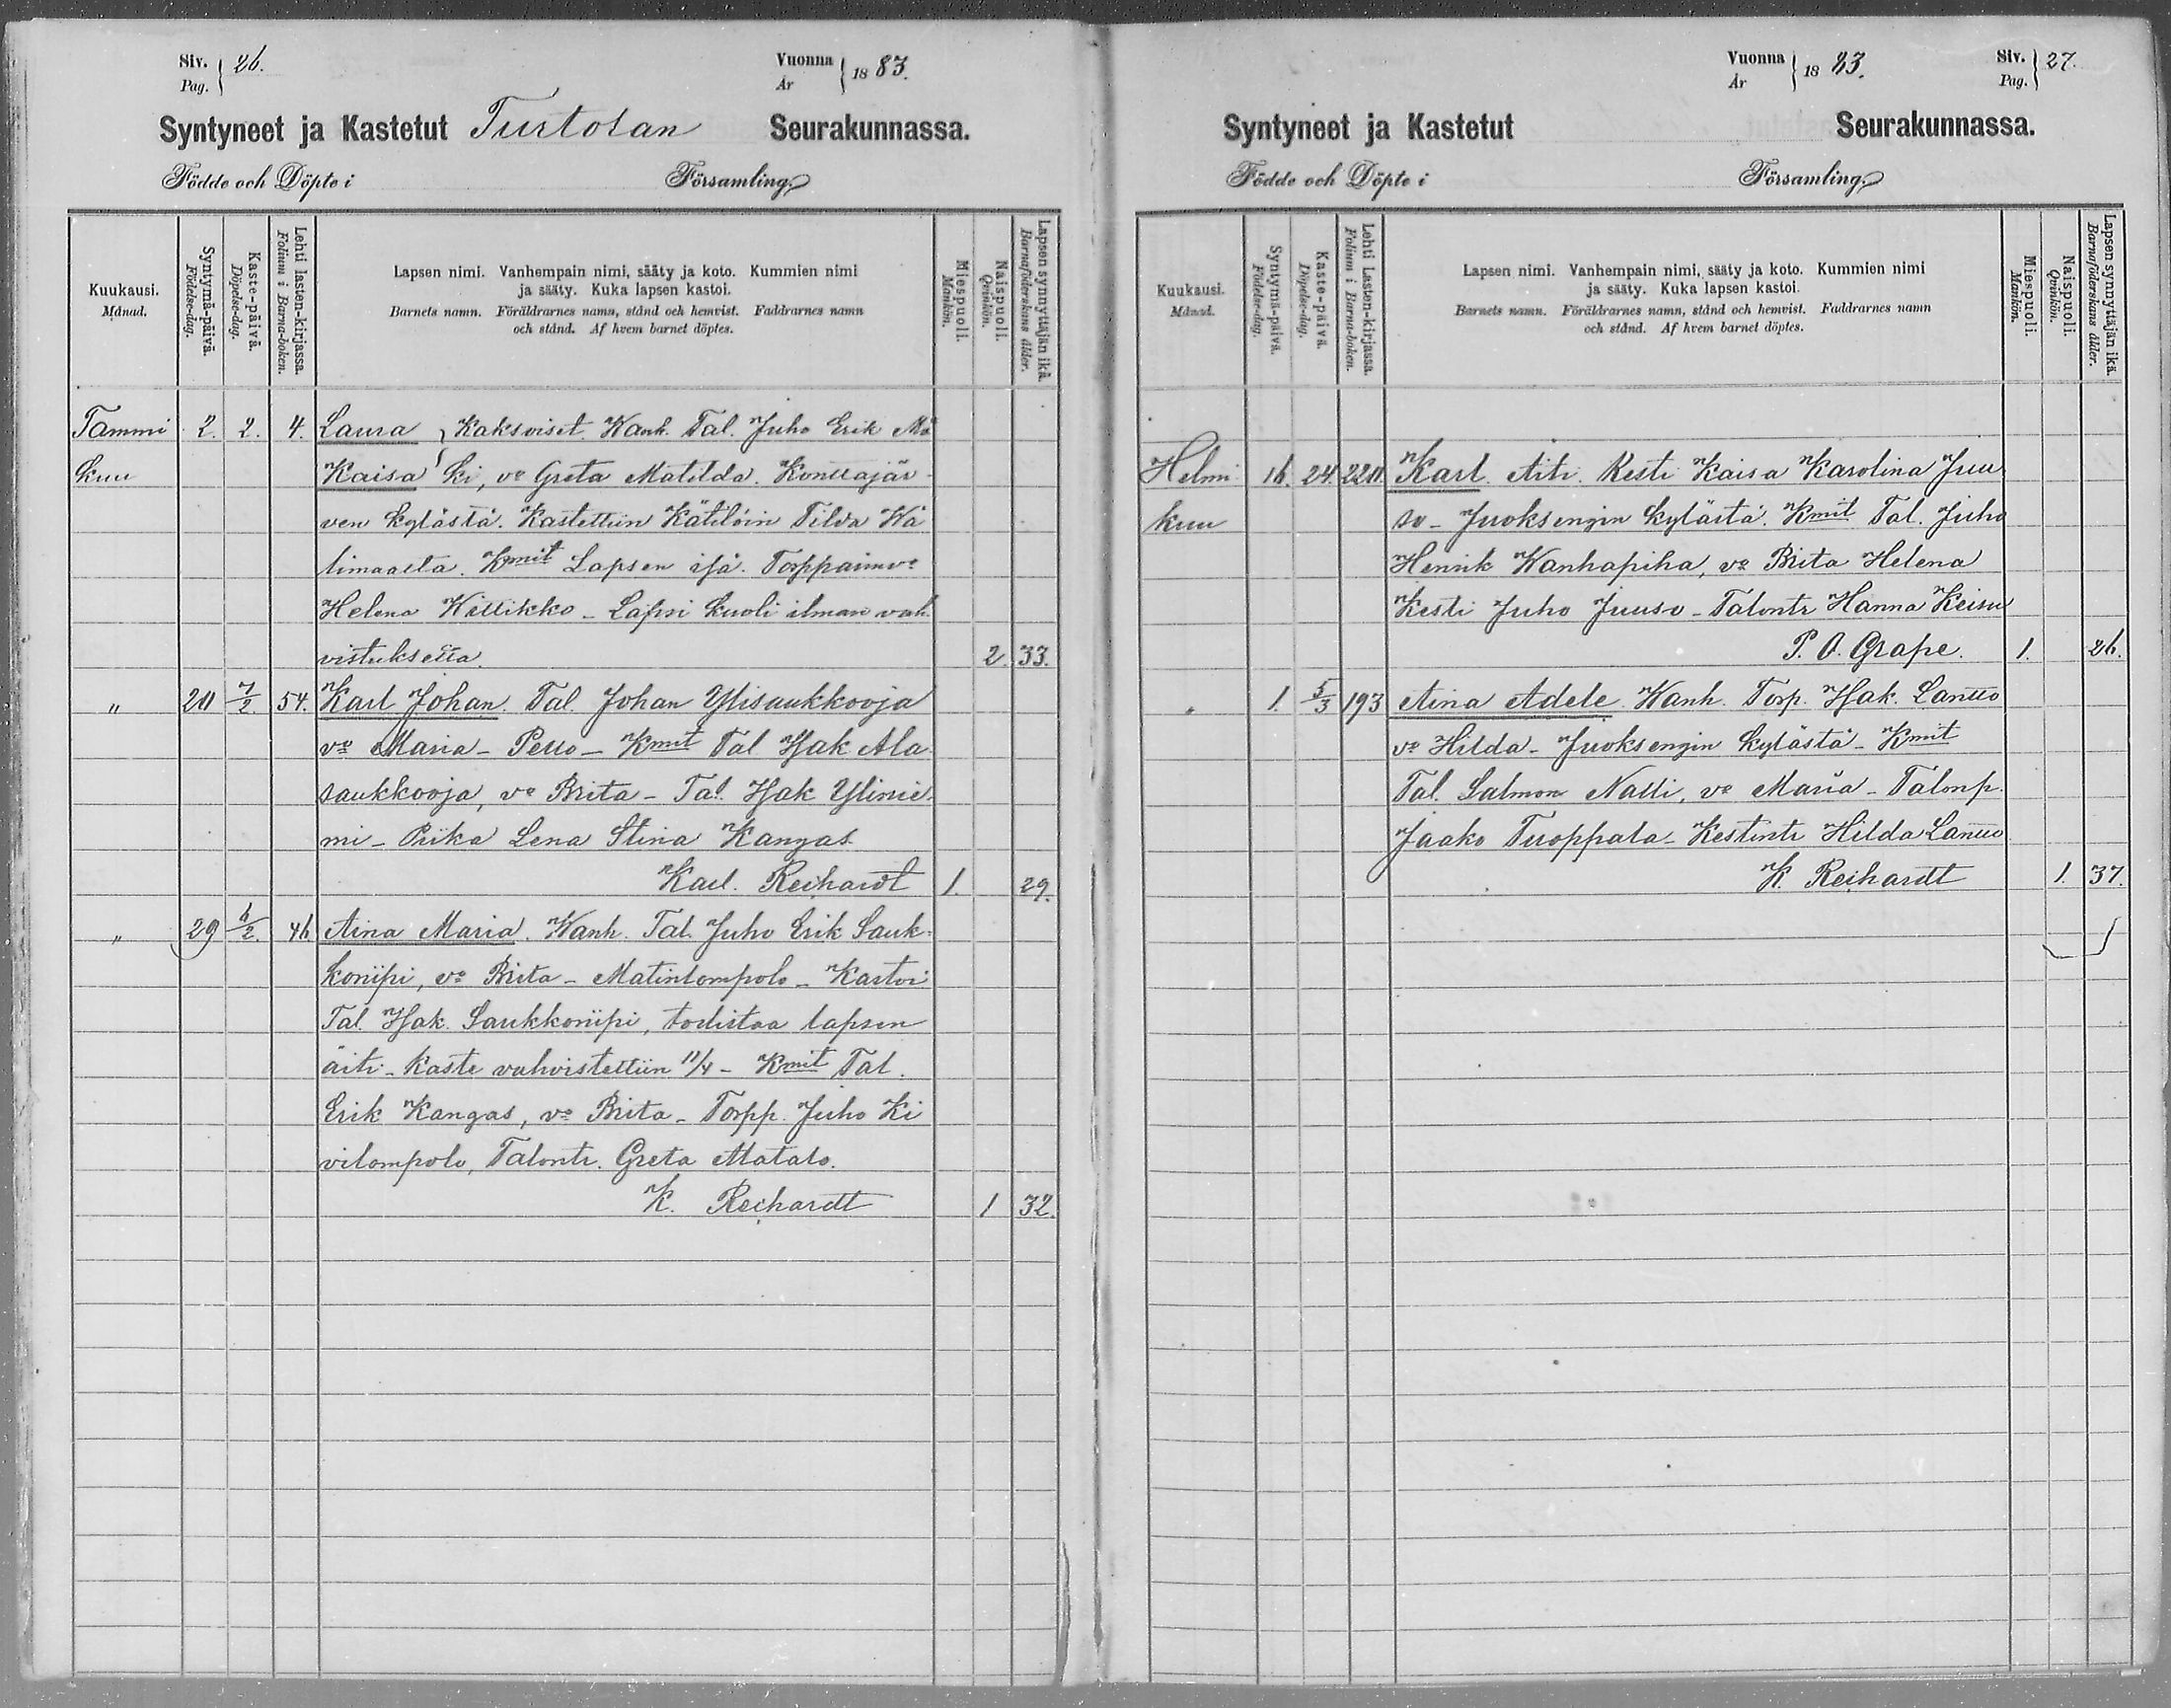 Siv. Pag. } 26.
Vuonna År } 1883.
Syntyneet ja Kastetut Turtolan Seurakunnassa.
Födde och Döpte i Församling.
Kuukausi. Månad.
Syntymä-päivä. Födelse-dag.
Kaste-päivä. Döpelse-dag.
Lehti lasten-kirjassa. Folium i Barna-boken.
Lapsen nimi. Vanhempain nimi, sääty ja koto. Kummien nimi
ja sääty. Kuka lapsen kastoi.
Barnets namn. Föräldrarnes namn, stånd och hemvist. Faddrarnes namn
och stånd. Af hvem barnet döptes.
Miespuoli. Mankön.
Naispuoli. Qvinkön.
Lapsen synnyttäjän ikä. Barnaföderskans ålder.
Tammi 2. 2. 4. Laura } Kaksoiset. Wanh. Tal. Juho Erik Mä
kuu Kaisa ki, vo Greta Matilda. Konttajär-
ven kylästä. Kastettiin Kätilöin Tilda Wä
limaalta. Kmit Lapsen isä. Torppainvo
Helena Kittikko - Lapsi kuoli ilman vah
vistuksetta. 2. 33.
" 20 7/2. 54. Karl Johan. Tal. Johan Ylisaukkooja
vo Maria - Pello - Kmit Tal Isak Ala
saukkooja, vo Brita - Tal. Isak Ylinie-
mi - Piika Lena Stina Kangas
Karl. Reihardt 1. 29.
" 29 6/2. 46 Aina Maria. Wanh. Tal. Juho Erik Sauk-
koriipi, vo Brita - Matinlompolo - Kastoi
Tal. Isak. Saukkoriipi, todistaa lapsen
äiti - Kaste vahvistettiin 11/4 - Kmit Tal.
Erik Kangas, vo Brita - Torpp. Juho Ki
vilompolo, Talontr. Greta Matalo.
K. Reihardt 1 32.
Vuonna År } 1883.
Siv. Pag. } 27.
Syntyneet ja Kastetut Seurakunnassa.
Födde och Döpte i Församling.
Kuukausi. Månad.
Syntymä-päivä. Födelse-dag.
Kaste-päivä. Döpelse-dag.
Lehti lasten-kirjassa. Folium i Barna-boken.
Lapsen nimi. Vanhempain nimi, sääty ja koto. Kummien nimi
ja sääty. Kuka lapsen kastoi.
Barnets namn. Föräldrarnes namn, stånd och hemvist. Faddrarnes namn
och stånd. Af hvem barnet döptes.
Miespuoli. Mankön.
Naispuoli. Qvinkön.
Lapsen synnyttäjän ikä. Barnaföderskans ålder.
Helmi 16. 24. 220. Karl. Äiti. Kesti Kaisa Karolina Juu
kuu so - Juoksengin kylästä. Kmit Tal. Juho
Henrik Wanhapiha, vo Brita Helena
Kesti Juho Juuso - Talontr Hanna Keisu
P. O. Grape. 1. 26.
" 1. 5/3 193 Aina Adele. Wanh. Torp. Isak. Lantto
vo Hilda - Juoksengin kylästä - Kmit
Tal. Salmon Nalli, vo Maria - Talonp.
Jaako Tuoppala - Kestintr Hilda Lantto
K. Reihardt 1. 37.